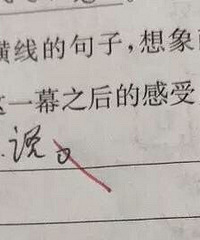 横线的句子，想象
这一幕之后的感受
说。